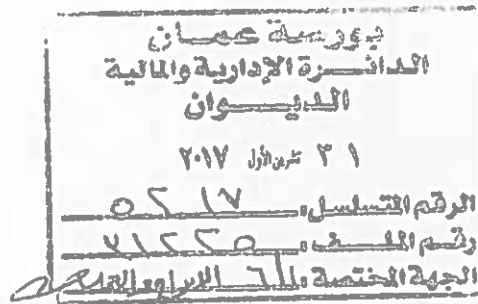 بورصة عمان
الدائرة الإدارية والمالية
الديوان
٣١ تشرين الأول ٢٠١٧
الرقم المتسلسل: ٥٢١٧
رقم الملف: ٧١٢٢٥
الجهة المختصة: